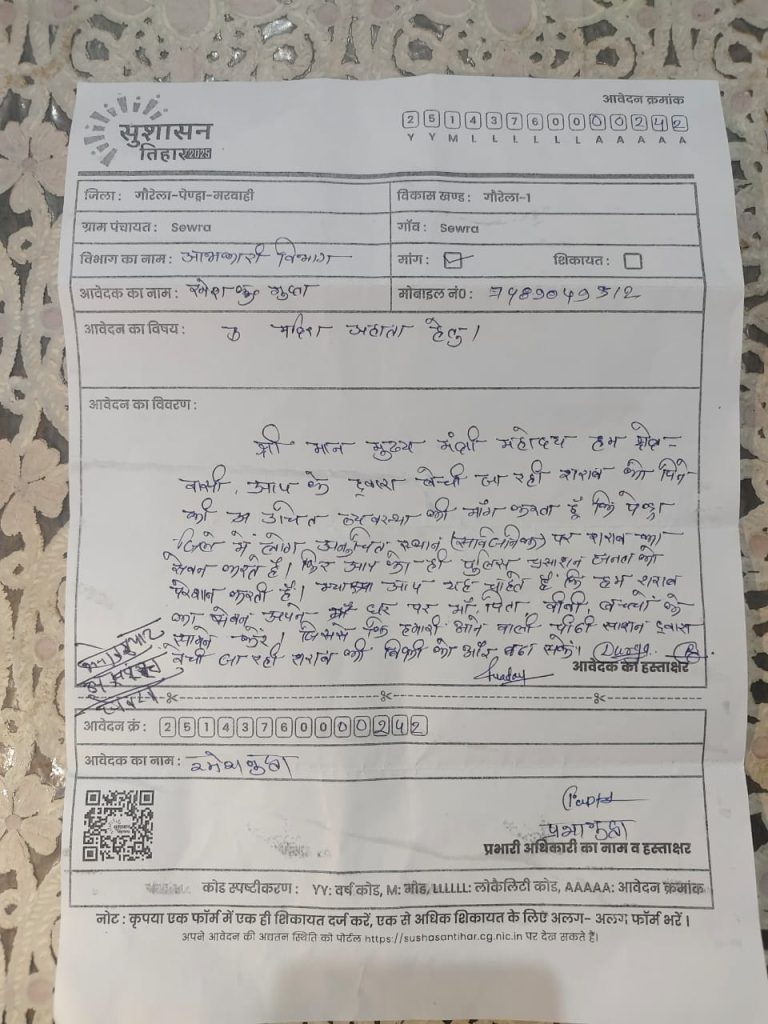 आवेदन क्रमांक
सुशासन
तिहार 2025
2 5 1 4 3 7 6 0 0 0 0 0 2 4 2
Y Y M L L L L L L A A A A A
जिला : गौरेला-पेण्ड्रा-मरवाही
विकास खण्ड : गौरेला-1
ग्राम पंचायत : Sewra
गाँव : Sewra
विभाग का नाम : आबकारी विभाग
मांग :
शिकायत :
आवेदक का नाम : रमेश गुप्ता
मोबाइल नं0 :
आवेदन का विषय : मदिरा अहाता हेतु।
आवेदन का विवरण :
श्री मान मुख्य मंत्री महोदय हम क्षेत्र-
वासी, आप के द्वारा बेची जा रही शराब को पिने
की उचित व्यवस्था की मांग करता हूँ कि पेण्ड्रा
जिले में लोग अनुचित स्थान (सार्वजनिक) पर शराब का
सेवन करते हैं। फिर आप की ही पुलिस प्रसाशन जनता को
परेशान करती हैं। क्या आप यह चाहते हैं कि हम शराब
का सेवन अपने घर पर माँ, पिता, बीवी, बच्चों के
सामने करें। जिससे कि हमारी आने वाली पीढी साशन द्वारा
बेची जा रही शराब की बिक्री को और बढा सकें।
आवेदक का हस्ताक्षर
आवेदन क्रं : 2 5 1 4 3 7 6 0 0 0 0 0 2 4 2
आवेदक का नाम : रमेश गुप्ता
प्रभारी अधिकारी का नाम व हस्ताक्षर
कोड स्पष्टीकरण : YY: वर्ष कोड, M: मोड, LLLLLL: लोकैलिटी कोड, AAAAA: आवेदन क्रमांक
नोट : कृपया एक फॉर्म में एक ही शिकायत दर्ज करें, एक से अधिक शिकायत के लिए अलग- अलग फॉर्म भरें ।
अपने आवेदन की अद्यतन स्थिति को पोर्टल https://sushasantihar.cg.nic.in पर देख सकते हैं।